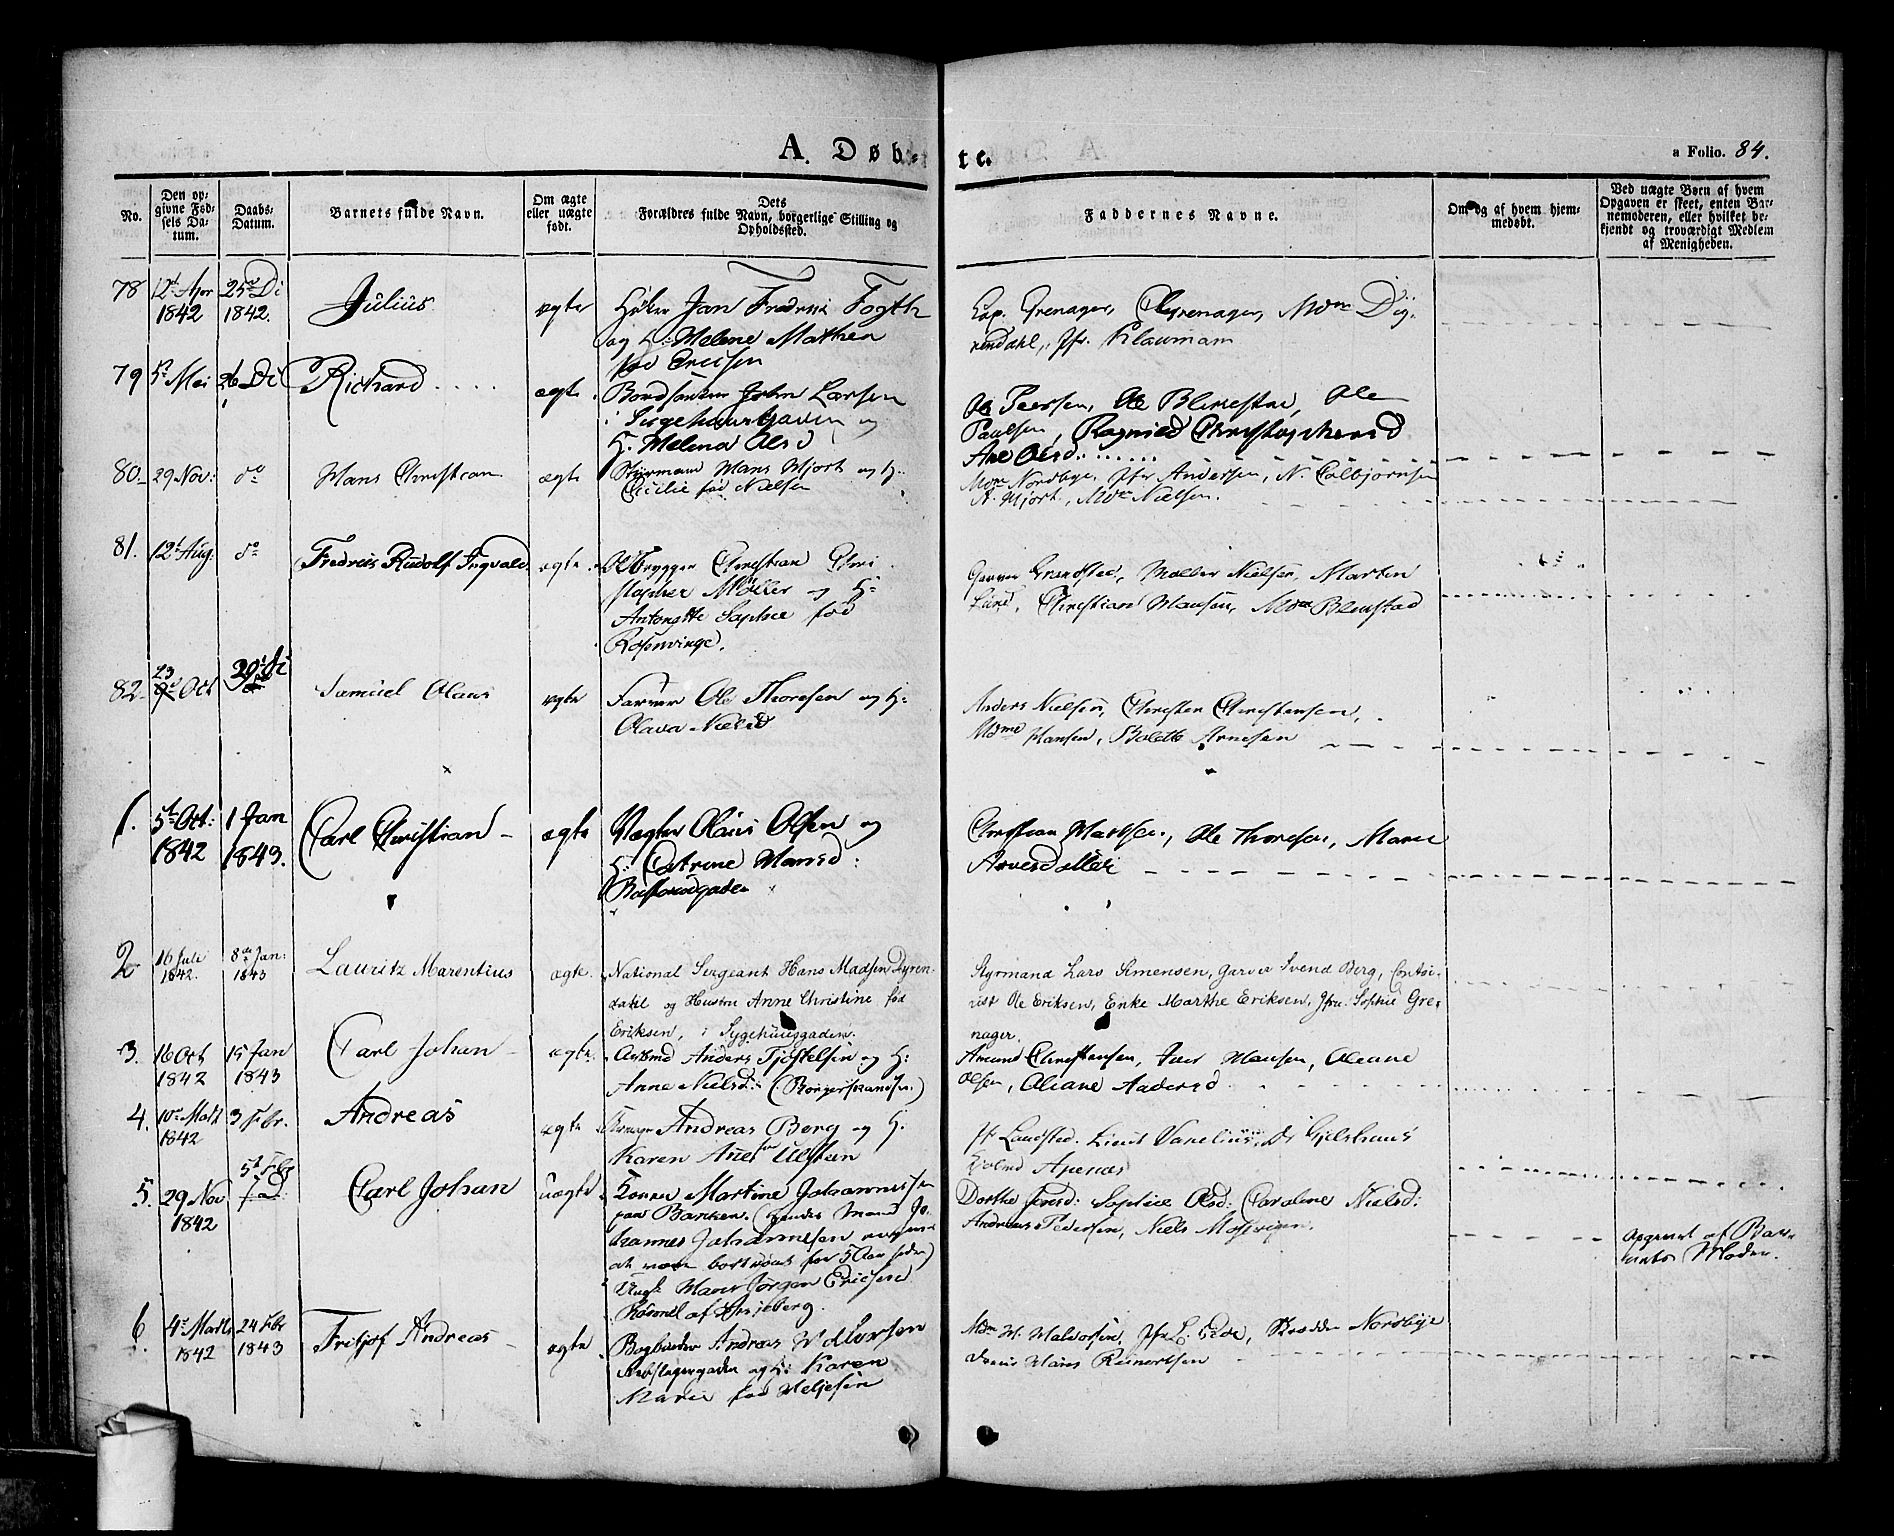 A. Døb-
te.
a Folio. 84.
No.
Den op-
givne Fød-
sels Da-
tum.
Daabs-
Datum.
Barnets fulde Navn.
Om ægte
eller uægte
født.
Dets
Forældres fulde Navn, borgerlige Stilling og
Opholdssted.
Faddernes Navne.
Om og af hvem hjem-
medøbt.
Ved uægte Børn af hvem
Opgaven er skeet, enten Bar-
nemoderen, eller hvilket be-
kjendt og troværdigt Medlem
af Menigheden.
78 12t Apr 25de Di Julius ægte Høker Jan Fredrik Fogth
1842 1842. og H: Helene Mathea
fød Ericsen
Cap. Grenager, Chr Grenager, Mdm Dy-
rendahl, Jfr. Klaumann
79 5t Mai 26 Di Richard ægte Bondsanken John Larsen
i Sygehuusgaden og
H. Helena Olsd
Ole Peersen, Ole Blikestue, Ole
Paulsen, Ragnild Christophersd
Ane Olsd
80 29 Nov: do Hans Christian ægte Styrmand Hans Hjort og H:
Cicilie fød Nielsen
Mdm Nordbye, Jfr Andersen, N. Colbjørnsen
A. Hjort, Mdm Nielsen.
81. 12t Aug. do Fredrik Rudolf Ingvald ægte Ølbrygger Christian Chri
stopher Møller og H:
Antonette Sophie fød
Rosenvinge.
Garver Grandsted, Møller Nielsen, Martin
Lund, Christian Hansen, Mdm Blenstad
82 23 Oct 30t Di Samuel Olaus ægte Farver Ole Thoresen og H:
Olava Nielsd
Anders Nielsen, Christen Christensen,
Mdme Hansen, Bolette Arnesen
1. 5t Oct: 1 Jan Carl Christian ægte Vægter Olaus Olsen og
1842 1843. H: Catrine Hansd:
Christian Madsen, Ole Thoresen, Maren
2 16 Juli 8de Jan: Lauritz Marentius ægte. National Sergeant Hans Madsen Dyren-
1842. 1843 dahl og Hustru Anne Christine fød
Eriksen, i Sygehuusgaden.
Styrmand Lars Simensen, Garver Svend Berg, Contoi-
rist Ole Eriksen, Enke Marthe Eriksen, Jfru: Sophie Gre-
nager.
3. 16 Oct 15 Jan Carl Johan ægte. Arbmd Anders Tjostelsen og H:
1842 1843 Anne Nielsd: (Borgerstrandsen)
Amund Christensen, Iver Hansen, Oleane
Olsen, Oleane Andersd
4. 10de Mdtt 3 Febr. Andreas ægte Andreas Berg og H.
1842 Karen Anet Ulsteen
Jfr Landsted, Lieut Vanelius, Dr Gjelshaus
5. 29 Nov 5t Feb Carl Johan uægte Konen Martine Johannessen
1842 paa Banken. (hendes Mand Jo-
hannes Johannesen angives
at være bortrømt for 5 Aar siden)
Ungk Hans Jørgen Ericsen
Dorthe Iversd: Sophie Olsd: Caroline Nielsd:
Andreas Pedersen, Niels Mosvigen.
Opgivet af Bar-
nets Moder.
6. 4t Marts 24 Febr Fritjof Andreas ægte Bogbinder Andreas Wdlorsen
1842 1843 Rebslagergaden og H: Karen
Marie fød Heljesen
Mdm H. Halvorsen, Jfr L. Eide, Skrædder Nordbye
Hans Reinertsen